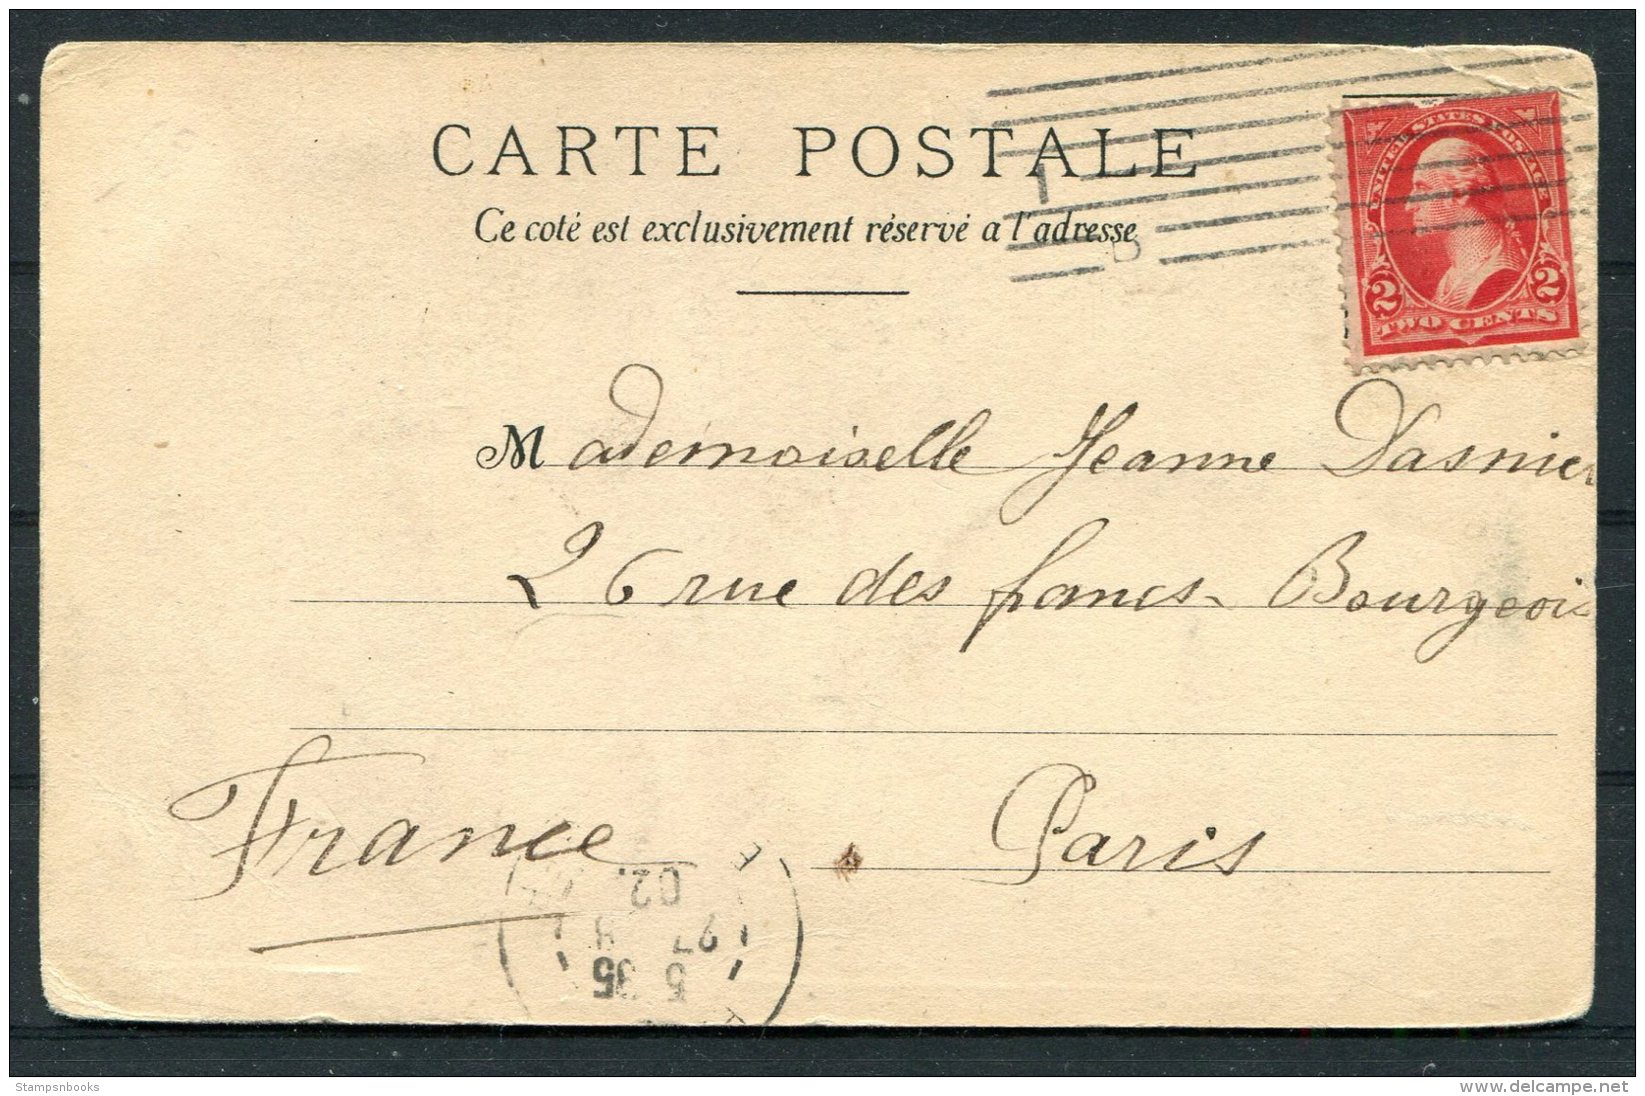 CARTE POSTALE
Ce coté est exclusivement réservé a l'adresse
UNITED STATES POSTAGE
2 2
TWO CENTS
Mademoiselle Jeanne Dasnier
26 rue des francs-Bourgeois
France Paris
5 35
27
02.
Stampsnbooks
www.delcampe.net